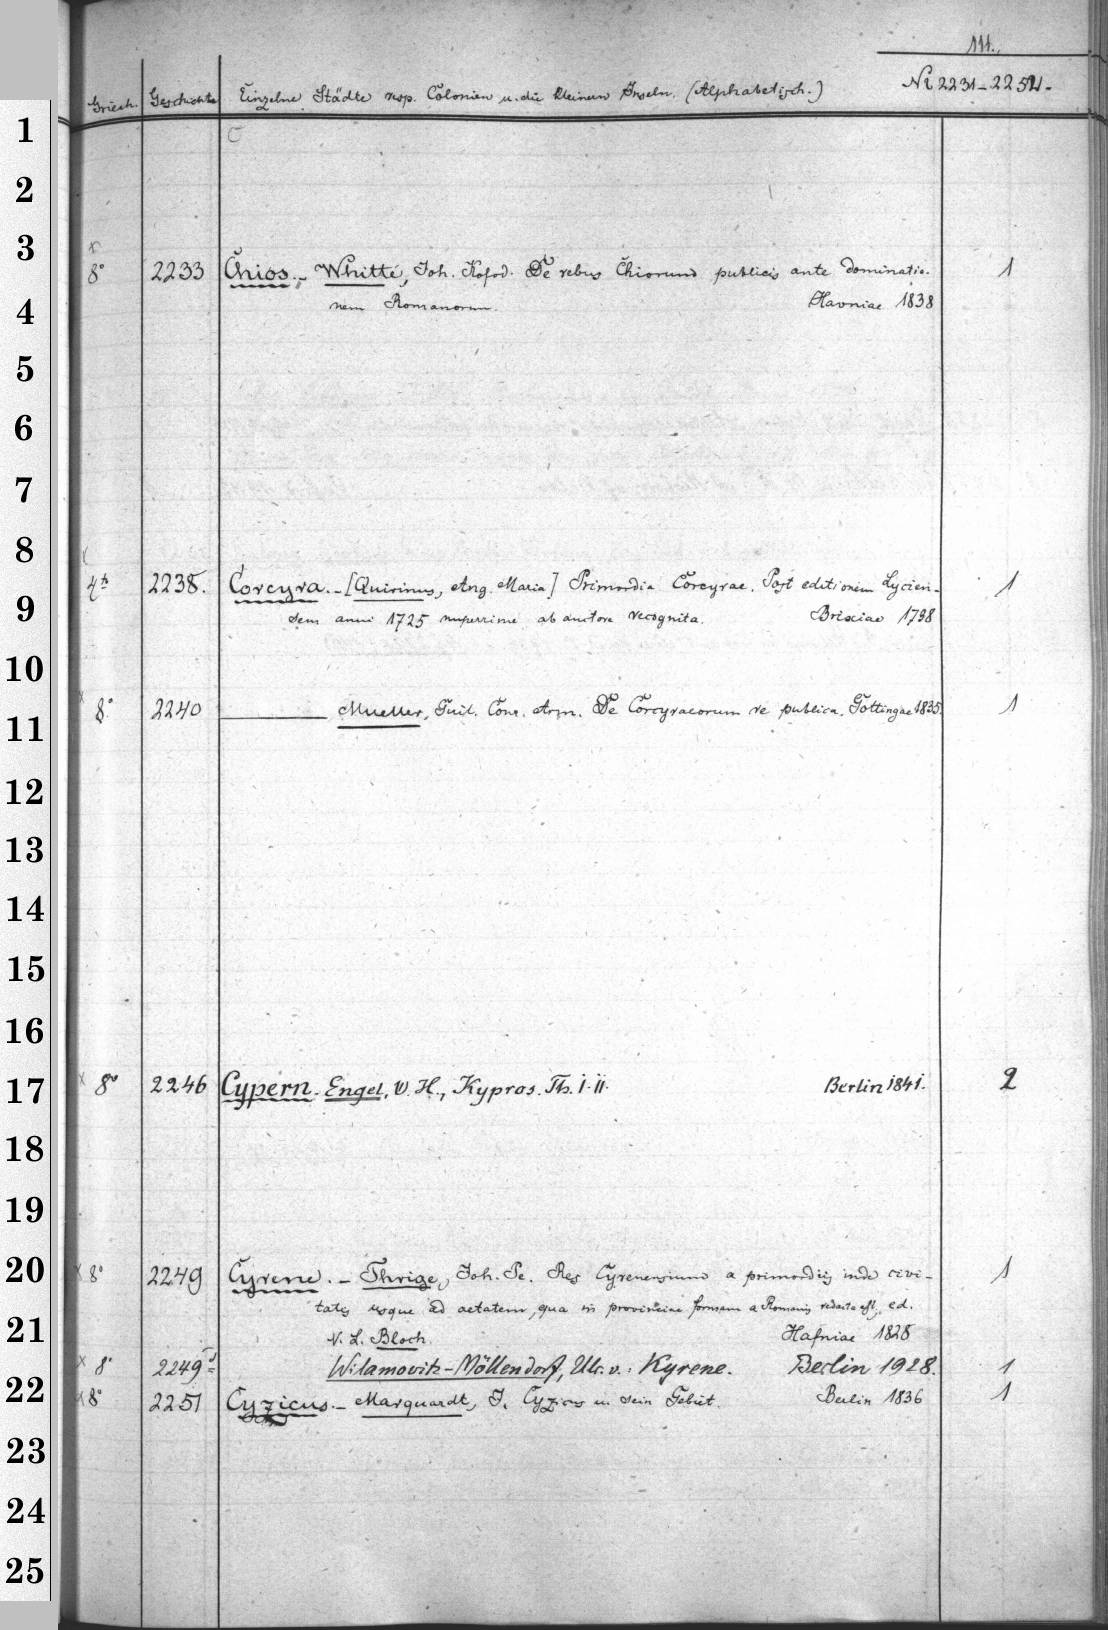 111.
Griech. Geschichte Einzelne Städte resp. Colonien u. die kleinern Inseln. (Alphabetisch.) № 2231-2252.
C
1
2
3
x
8° 2233 Chios. - Whitte, Joh. Kofod. De rebus Chiorum publicis ante dominatio- 1
nem Romanorum. Havniae 1838
4
5
6
7
8
4to 2238. Corcyra. - [Quirinus, Ang. Maria] Primordia Corcyrae. Post editionem Lycien- 1
sem anni 1725 nuperrime ab auctore recognita. Brixiae 1738
9
10
x 8° 2240 Mueller, Guil. Conr. Arm. De Corcyraeorum re publica. Gottingae 1835. 1
11
12
13
14
15
16
x 8° 2246 Cypern. Engel, W. H., Kypros. Th. I. II. Berlin 1841. 2
17
18
19
20
x 8° 2249 Cyrene. - Thrige, Joh. Pe. Res Cyrenensium a primordiis inde civi- 1
tatis usque ad aetatem, qua in provinciae formam a Romanis redacta est, ed.
21
N. L. Bloch. Hafniae 1828
x 8° 2249d Wilamovitz-Möllendorf, Ulr. v.: Kyrene. Berlin 1928. 1
22
x 8° 2251 Cyzicus. - Marquardt, J. Cyzicus u. sein Gebiet. Berlin 1836 1
23
24
25